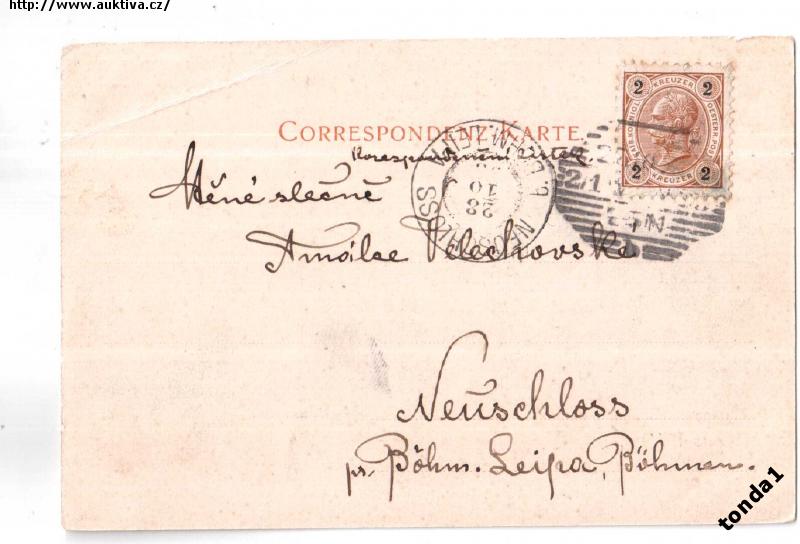 http://www.auktiva.cz/
2 KREUZER 2
2 KREUZER 2
CORRESPONDENZ-KARTE.
Korespondenční lístek
Ctěné slečně
Amálce Velechovské
NEUSCHLOSS
23
10
Neuschloss
pr. Böhm. Leipa, Böhmen.
tonda1